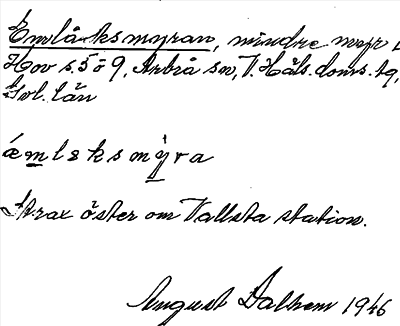 Emlåksmyran, mindre myr
Hov s. 5 ö 9, Arbrå sn, V. Häls. doms. tg,
Gvl. län
æmleksmyra
Strax öster om Vallsta station.
August Dalhem 1946